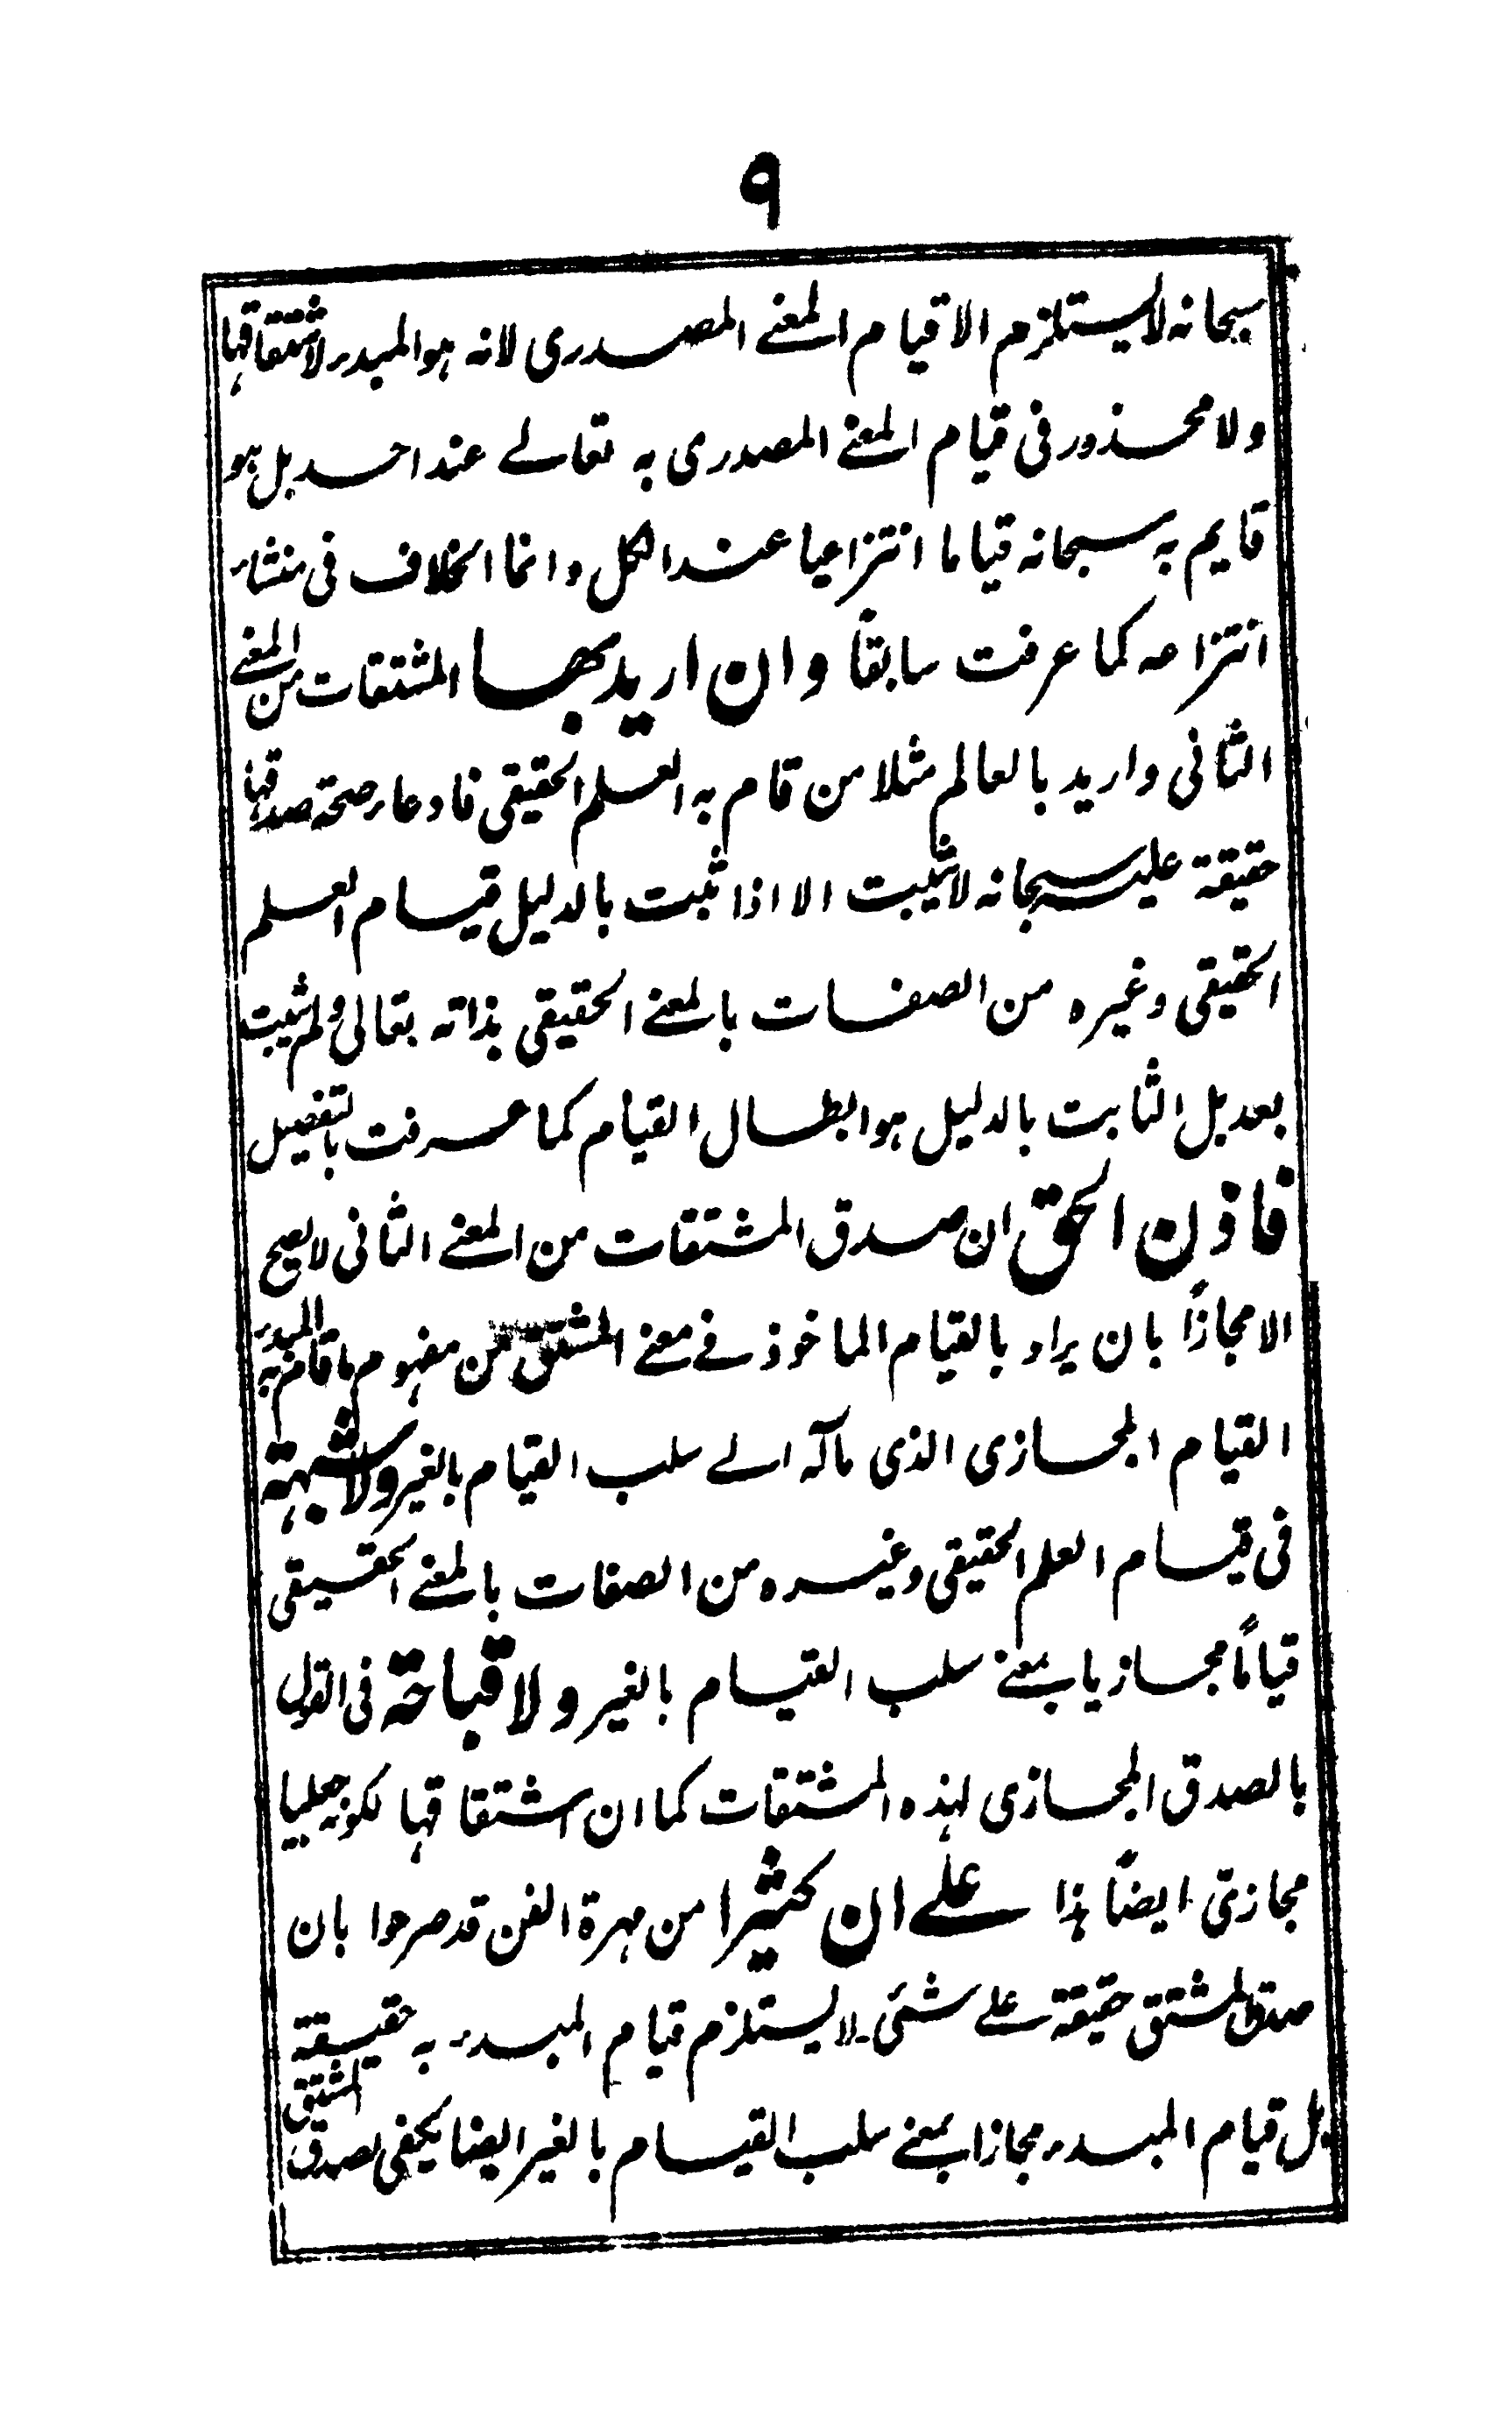 ٩
سبحانه لا يستلزم الا قيام المعنے المصدرى لانه هو المبدء لاشتقاقها
ولا محذور فى قيام المعنے المصدرى به تعالے عند احد بل هو
قايم به سبحانه قياما انتزاعيا عند الكل وانما الخلاف فى منشاء
انتزاعه كما عرفت سابقاً وان اريد بها المشتقات من المعنے
الثانى واريد بالعالم مثلا من قام به العلم الحقيقى فادعاء صحة صدقها
حقيقة عليه سبحانه لا يثبت الا اذا ثبت بالدليل قيام العلم
الحقيقى وغيره من الصفات بالمعنے الحقيقى بذاته تعالى ولم يثبت
بعد بل الثابت بالدليل هو ابطال القيام كما عرفت بالتفصيل
فاذن الحق ان صدق المشتقات من المعنے الثانى لا يصح
الا مجازاً بان يراد بالقيام الماخوذ فے معنے المشتق من مفهوم ما قام به المبدء
القيام المجازى الذى مآله الے سلب القيام بالغير ولا شبهة
فى قيام العلم الحقيقى وغيره من الصفات بالمعنے الحقيقى
قياماً مجازيا بمعنے سلب القيام بالغير ولا قباحة فى القول
بالصدق المجازى لهذه المشتقات كما ان اشتقاقها لكونه جعليا
مجازى ايضاً هذا علے ان كثيرا من مهرة الفن قد صرحوا بان
صدق المشتق حقيقة علے شئى لا يستلزم قيام المبدء به حقيقة
بل قيام المبدء مجازا بمعنے سلب القيام بالغير ايضا يكفى لصدق المشتق